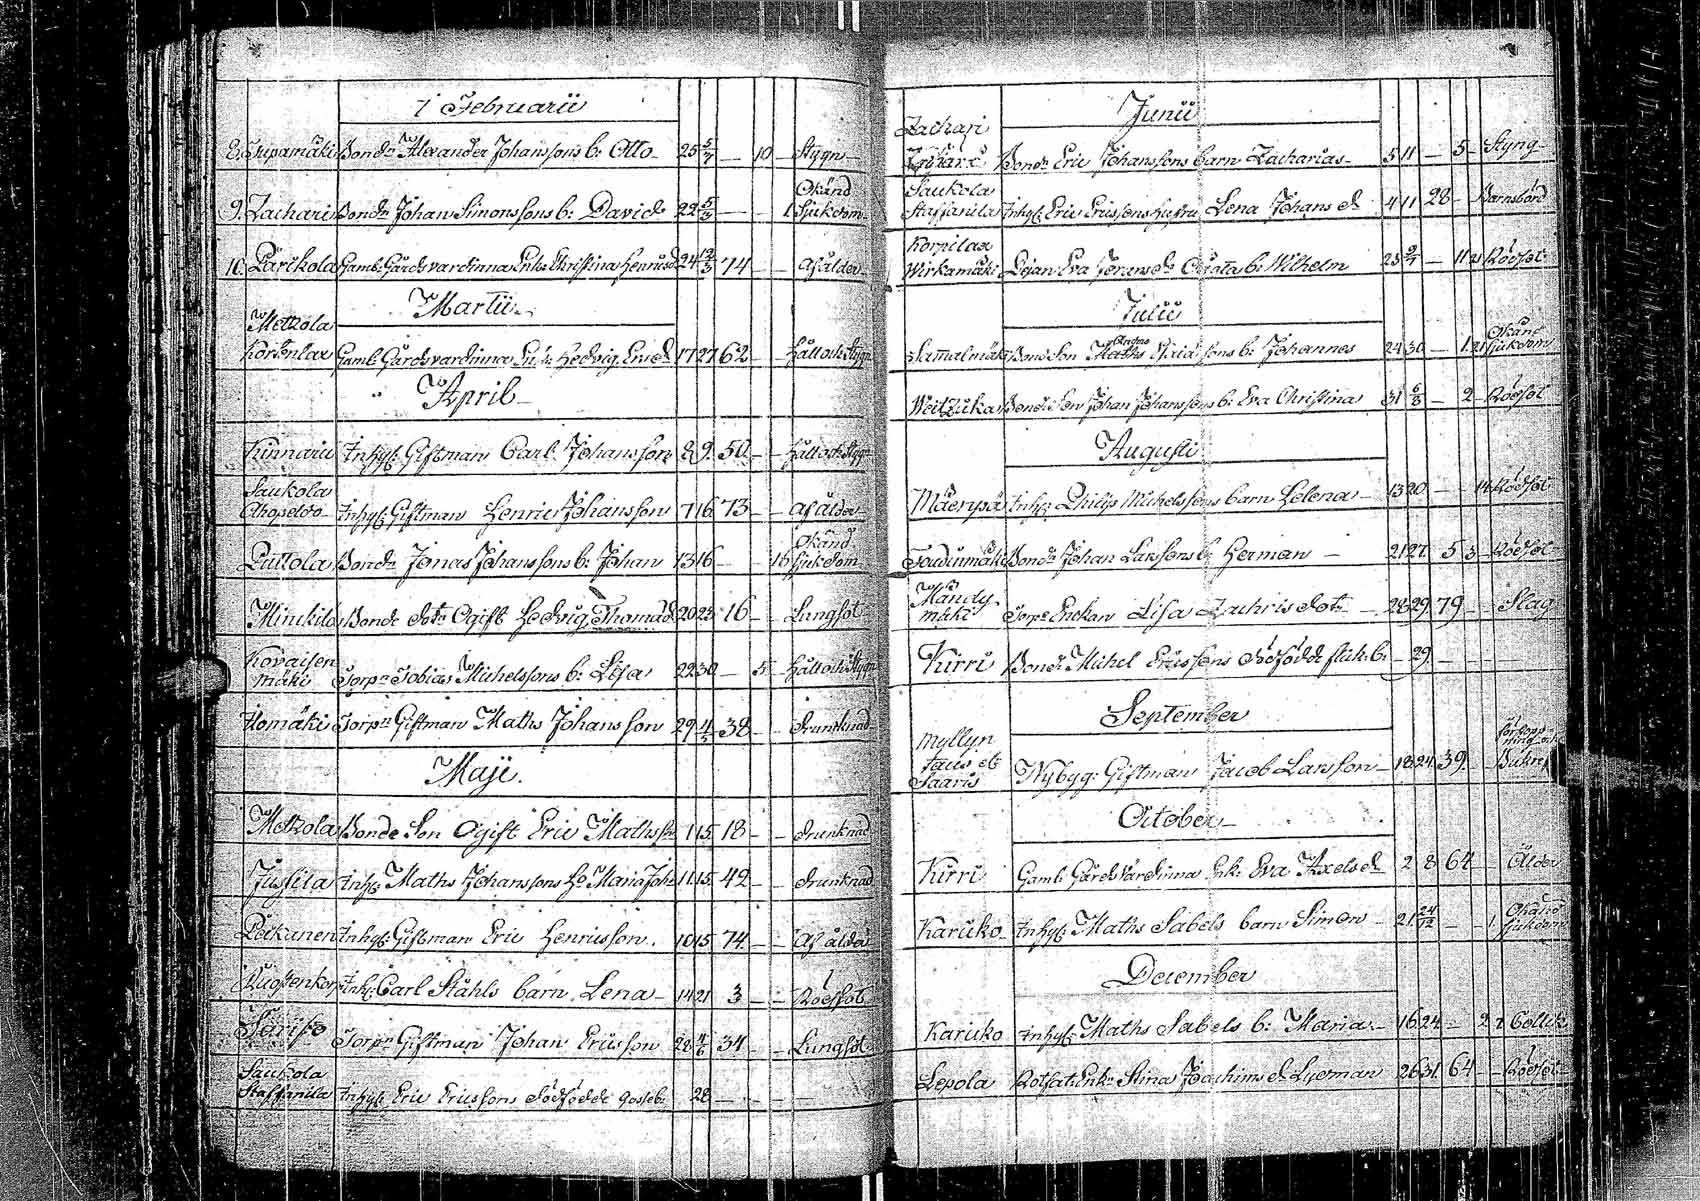 i Februarii
8. Bond: Alexander Johanssons b: Otto 25 5/7 — 10 — Stygn
Okänd
9. Zachari Bond: Johan Simonssons b: David 22 5/3 — — 1 Sjukdom
10. Pärikola Gamb: Gårdsvärdinna Enk: Christina Henricsd 24 12/3 74 — — Af ålder
Martii
Metzola
Korenlax Gamb: Gårdsvärdinna Hedvig Ericsd 17 27 62 — — Håll och Stygn
April
Kinnarii Inhys: Giftman Carl Johansson 8 9 50 — — Håll och Stygn
Saukola
Inhys: Giftman Henric Johansson 7 16 73 — — Af ålder
Okänd
Puttola Bond: Jonas Johanssons b: Johan 13 16 — — 16 Sjukdom
Minkila Bonde dotr Ogift Hedvig Thomasd 20 23 16 — — Lungsot
Kovaisen
mäki Torp: Tobias Michelssons b: Lisa 22 30 — 5 — Håll och Stygn
Homäki Torp: Giftman Maths Johansson 29 4/5 38 — — drunknad
Maji.
Metzola Bonde Son Ogift Eric Mathss: 1 15 18 — — drunknad
Jussila Inhys: Maths Johanssons Ho Maria Joh: 11 15 42 — — drunknad
Peikunen Inhys: Giftman Eric Henricsson. 10 15 74 — — Af ålder
Inhys: Carl Ståhls barn Lena 14 21 3 — — Rödsot
Torp: Giftman Johan Ericsson 28 4/6 34 — — Lungsot
Saukola
Staffanila Inhys: Eric Ericssons dödfödde gosseb: 28 — — —
Junii
Zachari
Bond: Eric Johanssons barn Zacharias 5 11 — 5 — Styng
Saukola
Staffanila Inhys: Eric Ericssons hustru Lena Johansd 4 11 28 — Barnsbörd
Korpilax
Wirkamäki Pigan Eva Jöransd: Oäkta b: Wilhelm 23 9/7 — 11 21 Rödsot
Julii
Okänd
Bond Son Maths b: Johannes 24 30 — 1 21 Sjukdom
Weitzuka Bond: Son Johan Johanssons b: Eva Christina 31 6/8 — 2 — Rödsot
Augusti
Mäerypä Inhys: Philip Michelssons barn Helena 13 20 — — 14 Rödsot
Toudinmäki Bond: Johan Larssons b: Herman — 21 27 5 3 — Rödsot
Mändy
mäki Torp: Enckan Lisa Zachrisdotr 28 29 79 — — Slag
Kirri Bond: Michel Ericssons dödfödde flick:b: — 29 — — —
September
Myllyn
taus et
Saaris Nybyg: Giftman Jacob Larsson 18 24 39
October
Kirri Gamb: Gårdsvärdinna Enk: Eva Axelsd 2 8 64 — Ålder
Okänd
Karuko Inhys: Maths Sabels barn Simon 21 24/12 — — 1 Sjukdom
December
Karuko Inhys: Maths Sabels b: Maria 16 24 — 2 7 Collik
Lepola Rotfat: Enk: Stina Joachimsd Lydman 26 31 64 — Rödsot